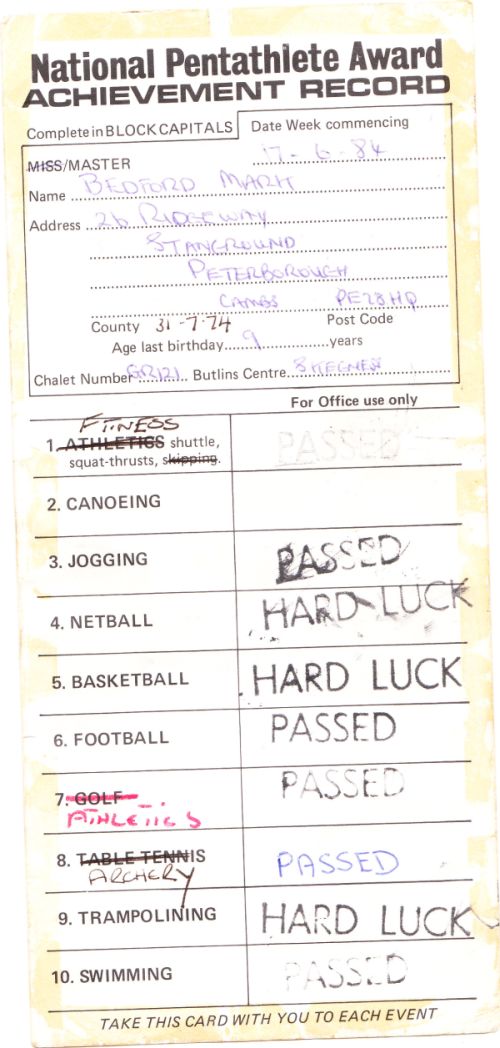 National Pentathlete Award
ACHIEVEMENT RECORD
Complete in BLOCK CAPITALS
Date Week commencing
17-6-84
MISS/MASTER
Name BEDFORD MARK
Address 26 RIDGEWAY
STANGROUND
PETERBOROUGH
CAMBS PE28HQ
County 31-7-74 Post Code
Age last birthday 9 years
Chalet Number GR121 Butlins Centre SKEGNESS
For Office use only
FITNESS
1. ATHLETICS shuttle, PASSED
squat-thrusts, skipping.
2. CANOEING
3. JOGGING PASSED
4. NETBALL HARD LUCK
5. BASKETBALL HARD LUCK
6. FOOTBALL PASSED
7. GOLF PASSED
ATHLETICS
8. TABLE TENNIS PASSED
ARCHERY
9. TRAMPOLINING HARD LUCK
10. SWIMMING PASSED
TAKE THIS CARD WITH YOU TO EACH EVENT